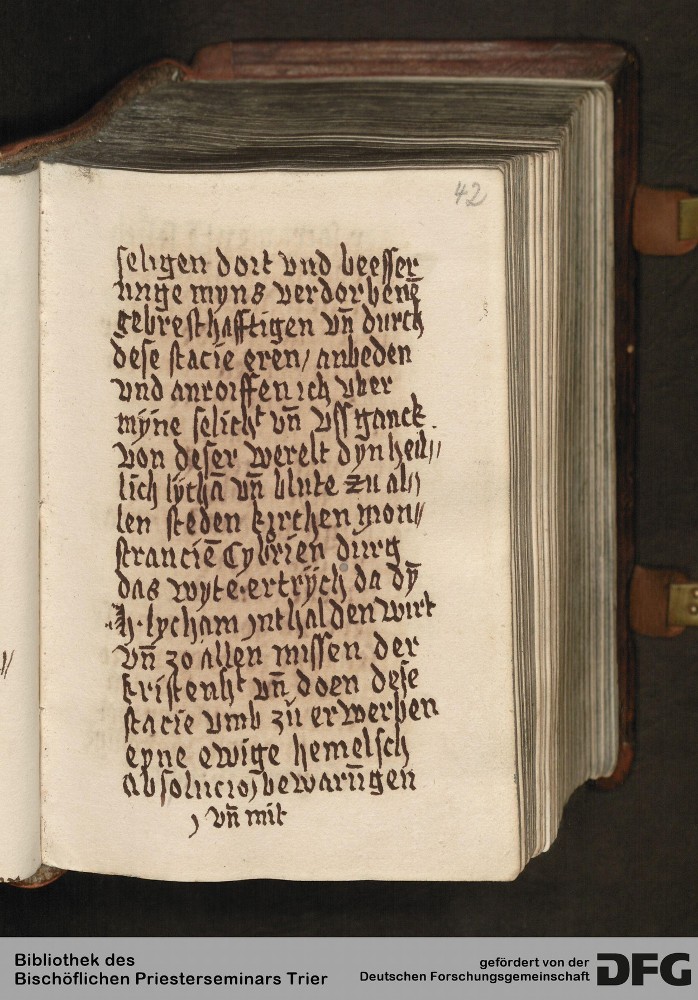 42
seligen dort vnd beesser
unge myns verdorbenē
gebresthafftigen vn̄ durch
dese stacie eren/ anbeden
vnd anroiffen ich vber
myne selicht vn̄ vssganck
von deser werelt dyn heil//
lich lychā vn̄ blute zu al//
len steden kirchen mon//
stranciē Cyborien durg
das wyte ertrych da dȳ
h. lycham ynthalden wirt
vn̄ zo allen missen der
kristenht vn̄ doen dese
stacie vmb zu erwerben
eyne ewige hemelsch
absolucioȝ bewarūgen
vn̄ mit
Bibliothek des
Bischöflichen Priesterseminars Trier
gefördert von der
Deutschen Forschungsgemeinschaft
DFG